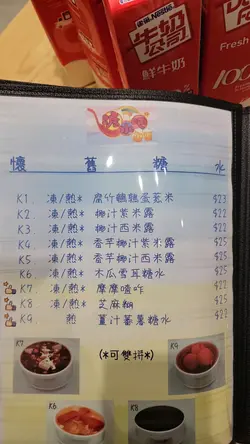 雀巢 Nestlé
牛奶公司
鮮牛奶
Fresh
100
懷舊糖水
K1. 凍/熱* 腐竹鵪鶉蛋薏米 $23
K2. 凍/熱* 椰汁紫米露 $22
K3. 凍/熱* 椰汁西米露 $22
K4. 凍/熱* 香芋椰汁紫米露 $25
K5 凍/熱* 香芋椰汁西米露 $25
K6. 凍/熱* 木瓜雪耳糖水 $22
K7. 凍/熱* 摩摩喳咋 $22
K8 凍/熱* 芝麻糊 $22
K9. 熱 薑汁蕃薯糖水 $22
K7
(*可雙拼*)
K9
K6
K8